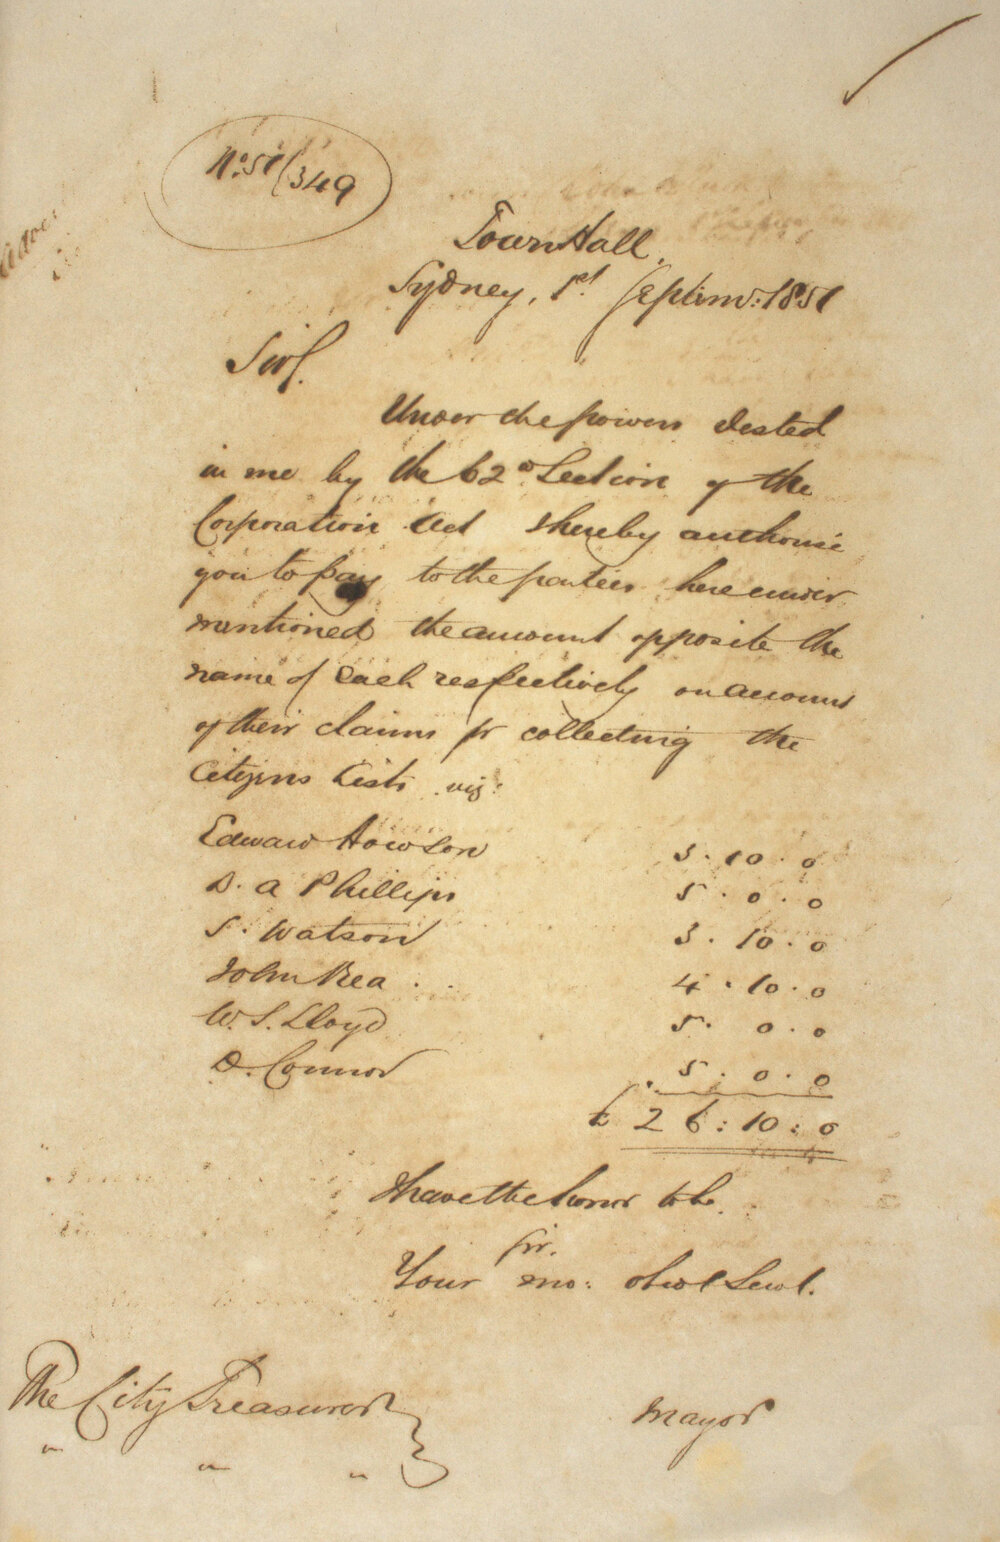 No. 51/349
Town Hall.
Sydney, 1st Septemr: 1851
Sir,
Under the powers vested
in me by the 62d Section of the
Corporation Act I hereby authorise
you to pay to the parties hereunder
mentioned the amount opposite the
name of each respectively on account
of their claims for collecting the
Citizens Lists viz:
Edward Howson 3.10.0
D. A Phillips 5.0.0
S. Watson 3.10.0
John Rea 4.10.0
W. S. Lloyd 5.0.0
D. Connor 5.0.0
£ 26:10:0
I have the honor to be,
Sir.
Your mo: obdt Servt.
The City Treasurer
" " "
Mayor